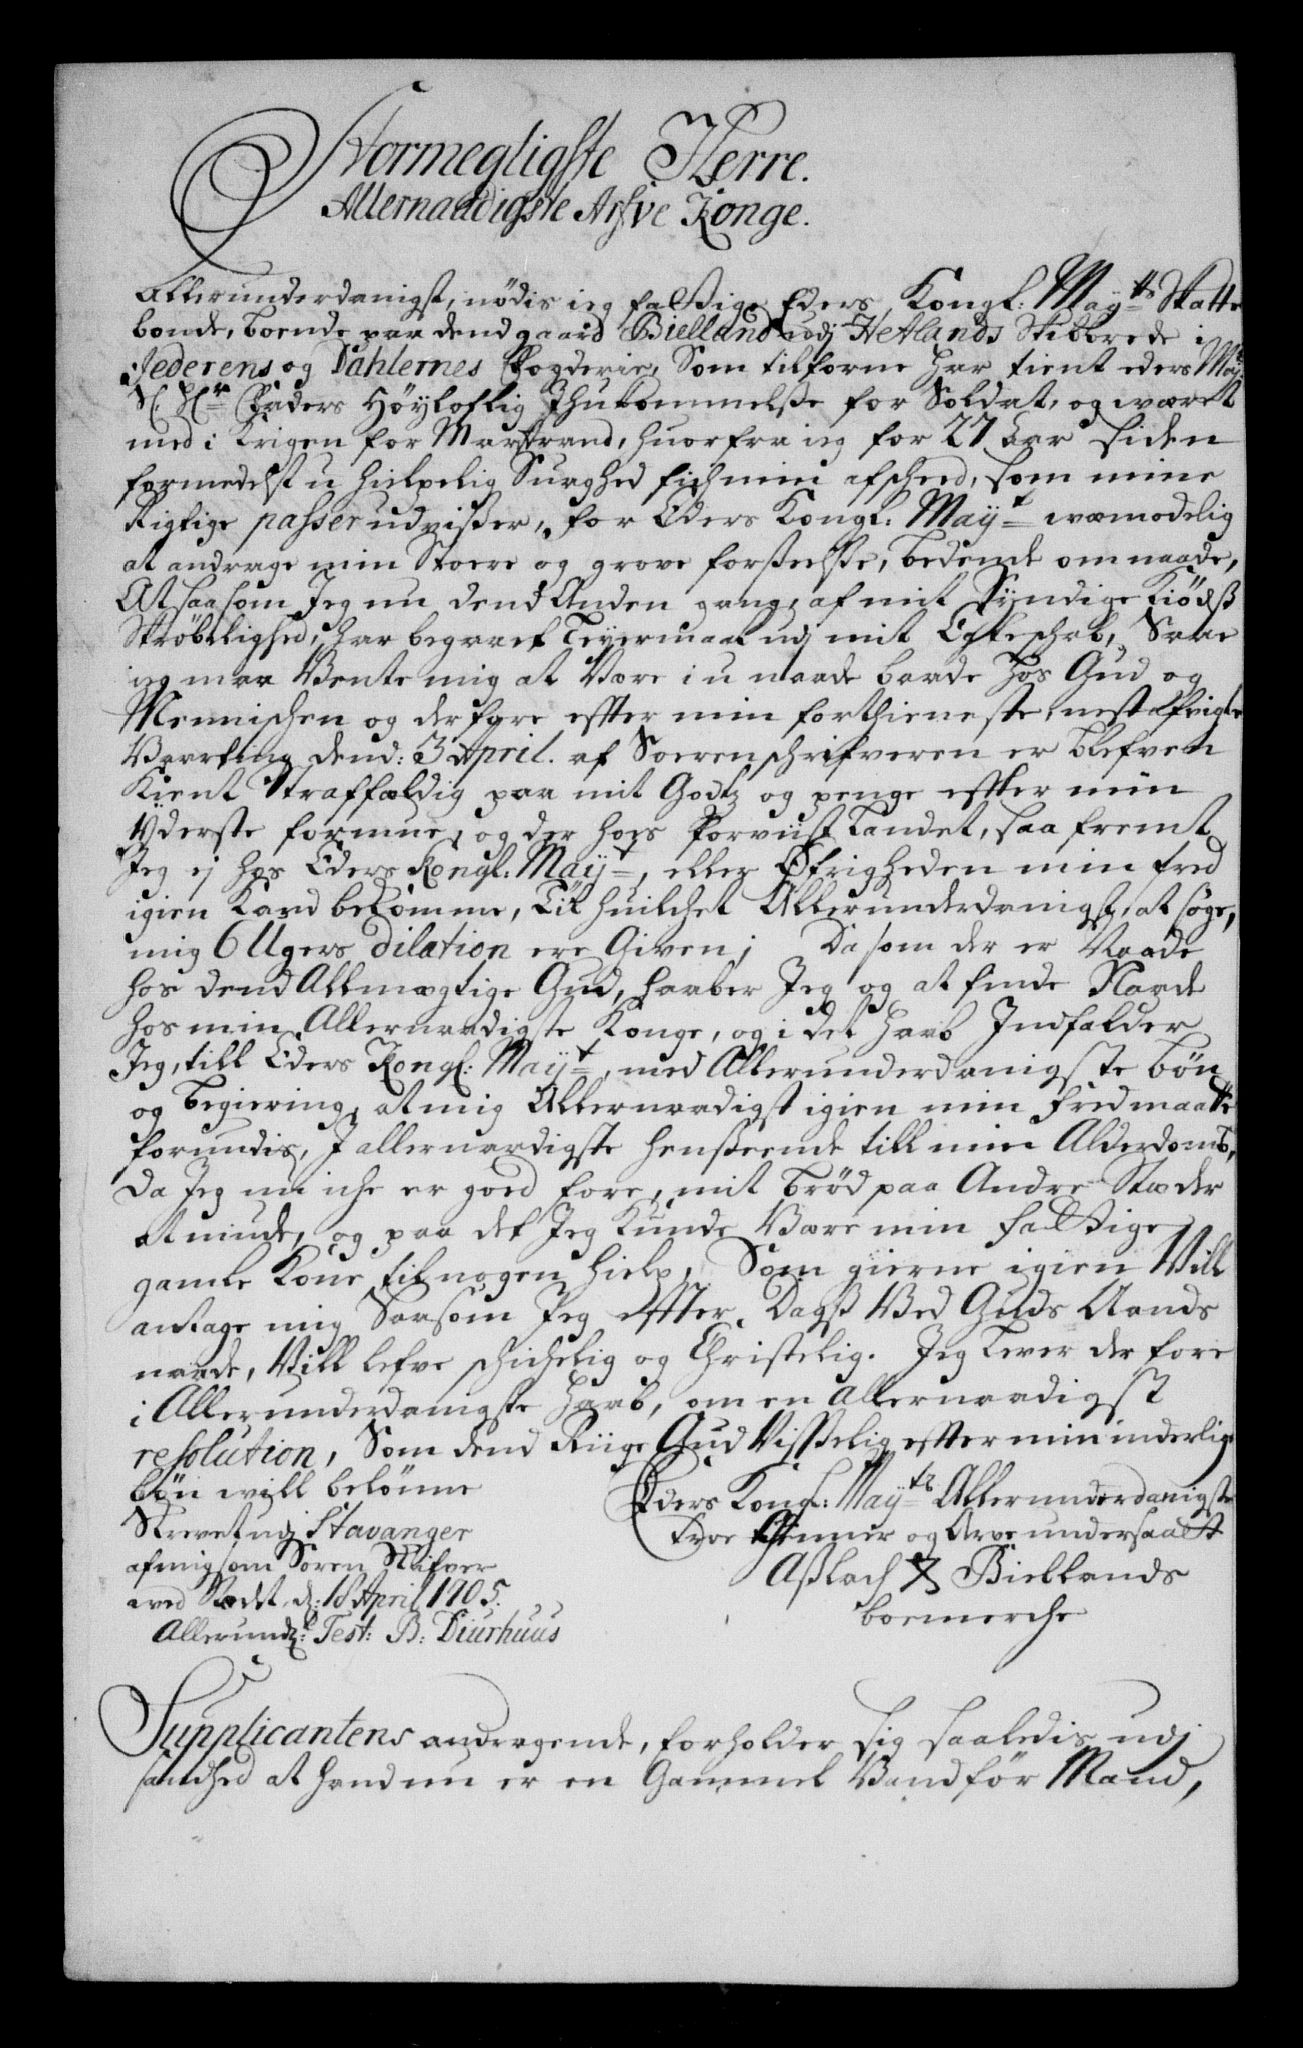 Stormegtigste Herre.
Allernaadigste Arfve Konge.
Allerunderdanigst, nödis ieg fattige Eders Kongl: Mayts Skatte
bonde, boende paa dend gaard Bielland udj Hetlands Skibbrede i
Jederens og Dahlernes fogderie, Som tilforne har tient eders May:
Sl. Hr Faders Höyloflig Ihukommelsse for Soldat, og wæret
med i Krigen for Marstrand, huorfra ieg for 27 aar siden
formedelst u hielpelig Svaghed fich min afscheed, som mine
Rigtige passer udvisser, for Eders Kongl: Mayt wemodelig
at andrage min Stoere og grove forsseelsse, bedende om naade,
At saasom Jeg nu dend Anden gang, af mit Syndige Kiödss
Skröbelighed, har begaaet Leyermaal udj mit Egteschab, Saa
ieg maa Vente mig at Være i u naade baade hos Gud og
Mennischen og derfore effter min forthieneste, nest afvigte
Vaarting dend: 3 April. af Soerenschrifveren er blefven
Kient Straffældig paa mit Godtz og penge effter min
Yderste formue, og der hoes forviist Landet, saa fremt
Jeg ej hos Eders Kongl: Mayt, eller Øfrigheden min fred
igien Kand bekomme, Til huilchet Allerunderdanigst, at söge,
mig 6 Ugers dilation ere Given; Da som der er Naade
hos dend Allmægtige Gud, haaber Jeg og at finde Naade
hos min Allernaadigste Konge, og i det haab Indfalder
Jeg, till Eders Kongl: Mayt, med Allerunderdanigste bön
og begiering, at mig Allernaadigst igien min fred maatte
forundis, I allernaadigste hensseende till min Alderdomb,
Da Jeg nu iche er goed fore, mit bröd paa Andre Stæder
at vinde, og paa det Jeg Kunde Være min fattige
gamle Kone til nogen hielp, Som gierne igien Vill
antage mig Saasom Jeg effter Dagss Ved Guds Aands
naade, Vill lefve schichelig og Christelig. Jeg lever der fore
i Allerunderdanigste haab, om en Allernaadigst
resolution, Som dend Riige Gud Visselig effter min inderlige
bön will belönne
Eders Kongl: Mayts Allerunderdanigste
Skrevet udj Stavanger
Troe Thienner og Arve undersaatt
af mig som Soren Skrifver
Asslach Biellands
wed Stædet, d: 18 April 1705.
boemerche
Allerundl: Test: B: Diurhuus
Supplicantens andragende, forholder sig saaledis udj
sandhed at hand nu er en Gammel Vandför Mand,